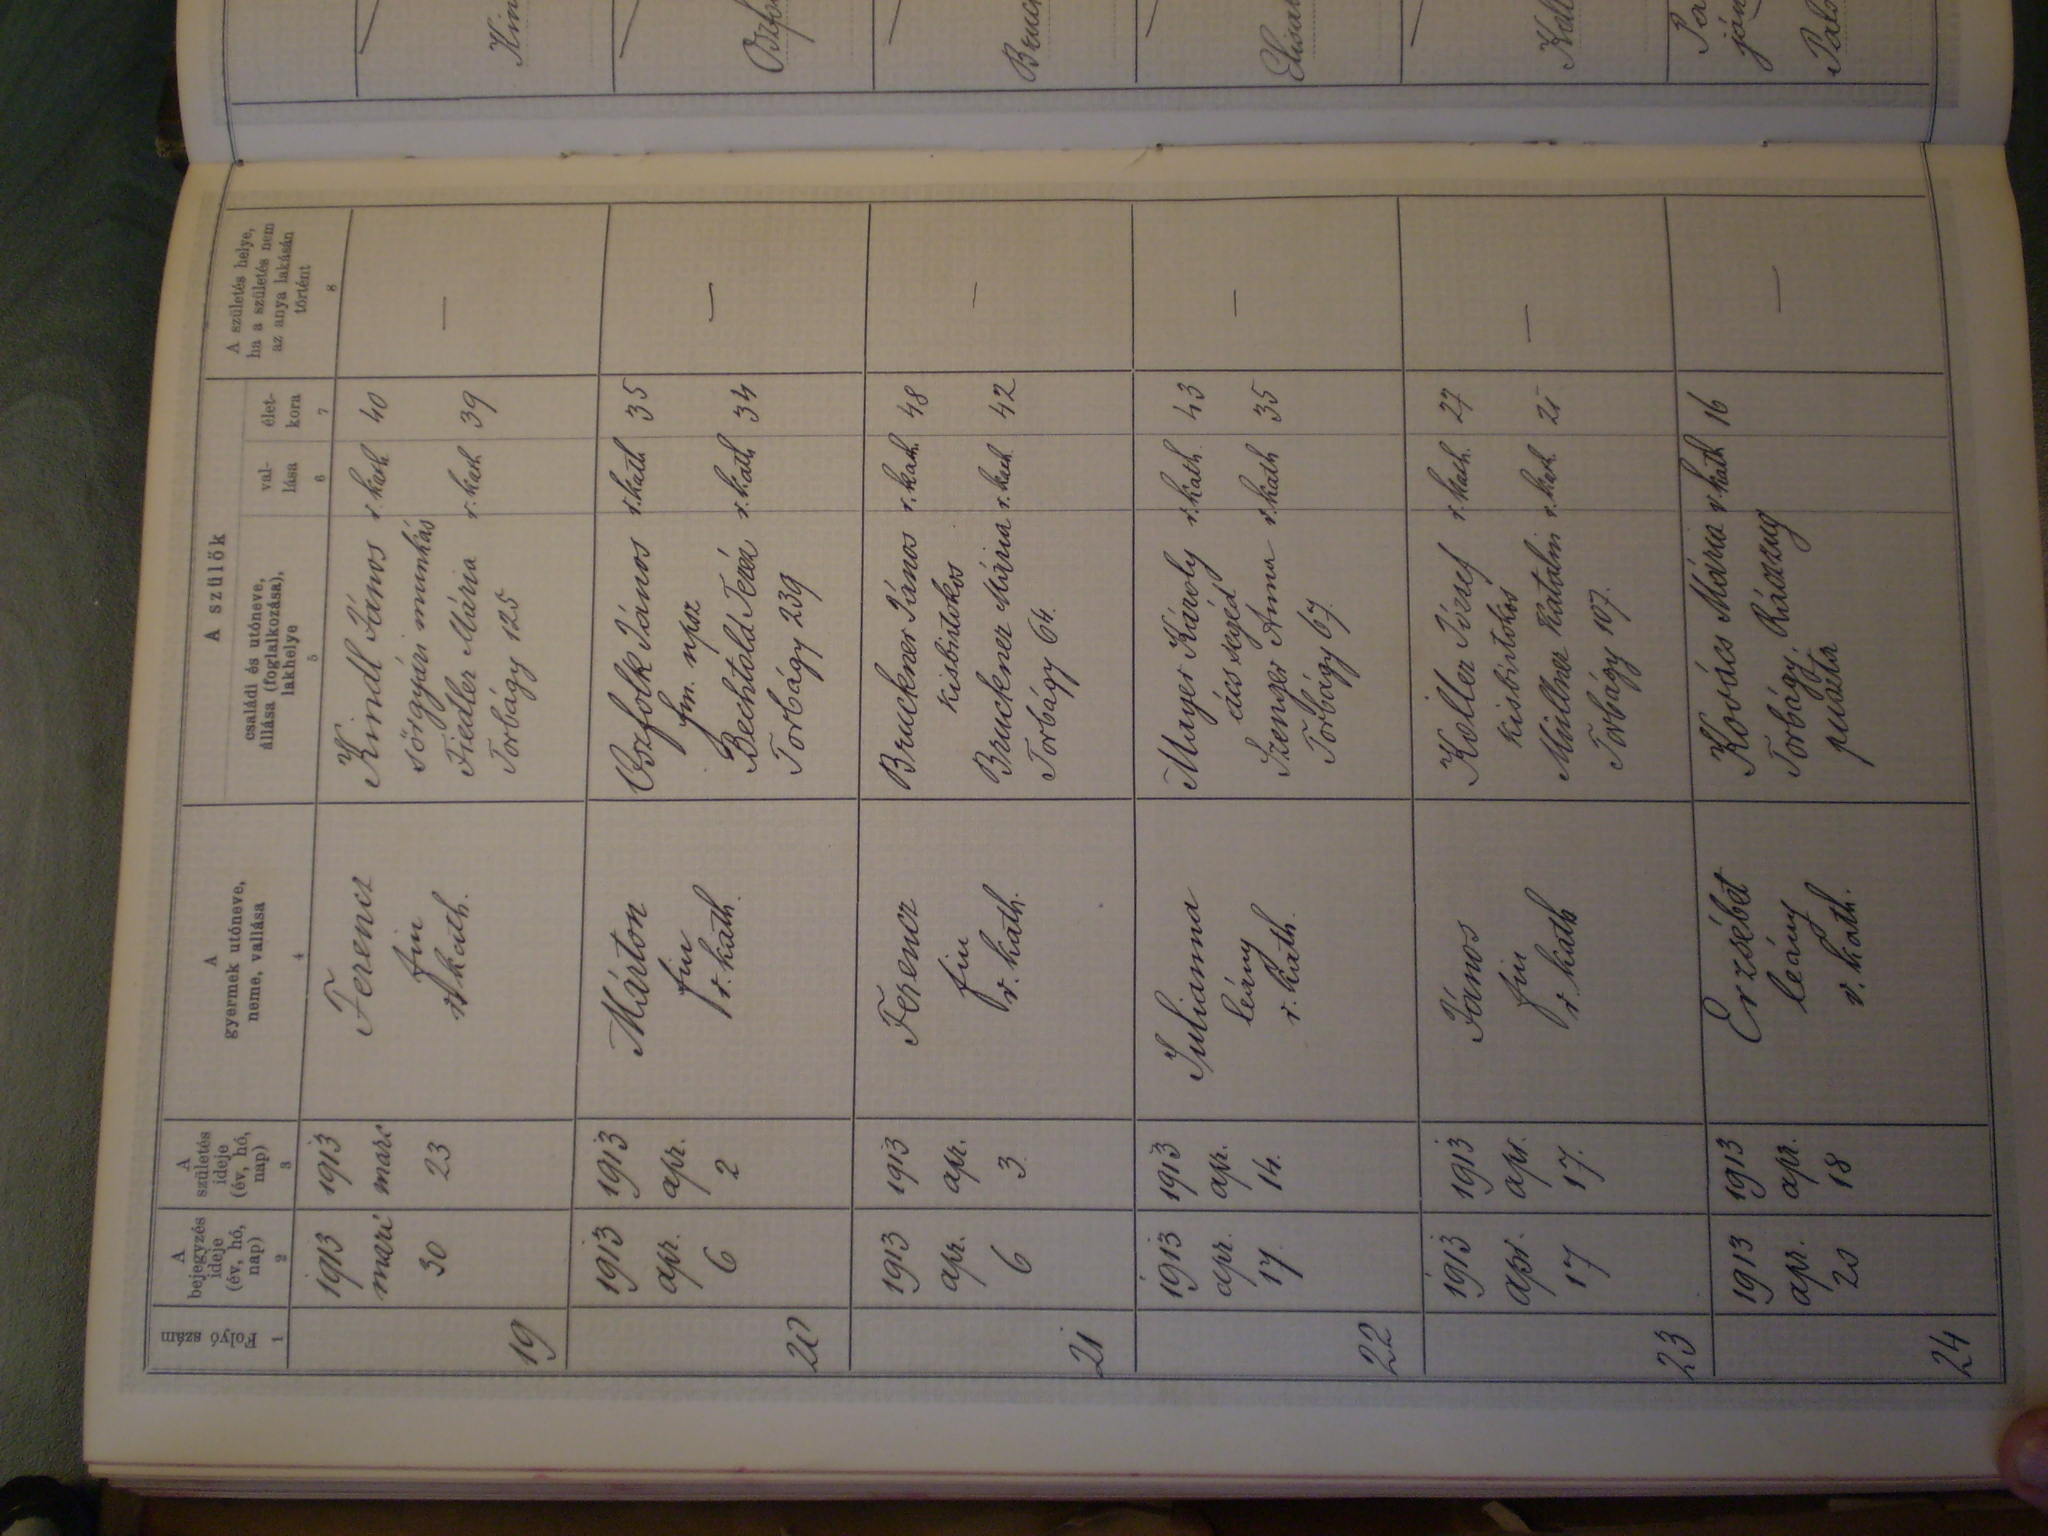 Folyó szám
1
A
bejegyzés
ideje
(év, hó,
nap)
2
A
születés
ideje
(év, hó,
nap)
3
A
gyermek utóneve,
neme, vallása
4
A szülők
családi és utóneve,
állása (foglalkozása),
lakhelye
5
val-
lása
6
élet-
kora
7
A születés helye,
ha a születés nem
az anya lakásán
történt
8
19
1913
30
1913
marc
23
Ferencz
fiu
r. kath.
Kindl János r. kath 40
sörgyári munkás
Fiedler Mária r. kath 39
Torbágy 125
—
20
1913
apr.
6
1913
apr.
2
Márton
fiu
r. kath.
János r. kath 35
fm. npsz
Bechtold Teréz r. kath 34
Torbágy 239
—
21
1913
apr.
6
1913
apr.
3.
Ferencz
fiu
r. kath.
Bruckner János r. kath. 48
kisbirtokos
Bruckner Mária r. kath. 42
Torbágy 64.
—
22
1913
apr.
17.
1913
apr.
14.
Julianna
leány
r. kath.
Mayer Károly r. kath. 43
ács segéd
Szenger Anna r. kath 35
Torbágy 67.
—
23
1913
apr.
17
1913
apr.
17.
János
fiu
r. kath
Koller József r. kath. 27
kisbirtokos
Müllner Katalin r. kath. 21
Torbágy 107.
—
24
1913
apr.
20
1913
apr.
18
Erzsébet
leány
r. kath.
Kovács Mária r. kath 16
Torbágy,
puszta
—
Kin
Bruck
Elisab
Koll
Pa